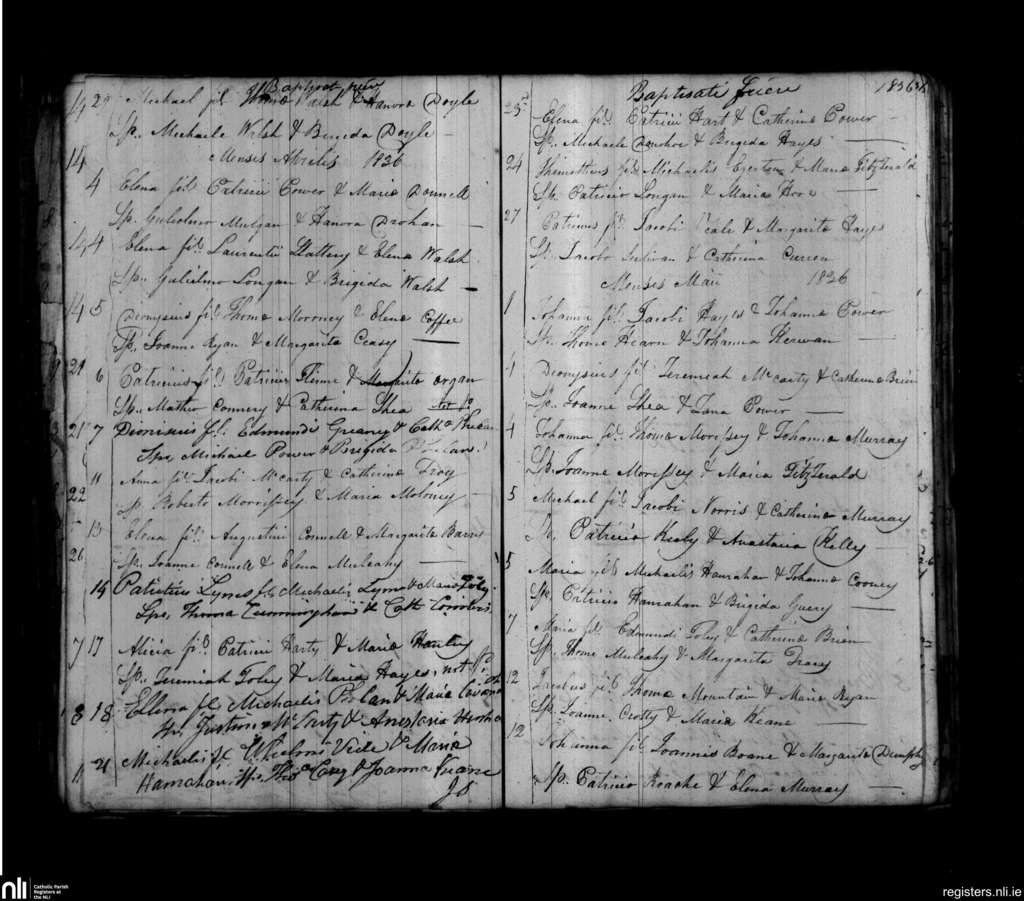 Baptizati fuere
14 2 Michael fil. Thoma Walsh & Hanora Doyle
Sp. Michaele Walsh & Brigida Doyle
14 Mensis Aprilis 1826
4 Elena fil. Patricii Power & Maria Donnell
Sp. Gulielmo Mulgan & Hanora Drohan
14 4 Elena fil. Laurentii Slattery & Elena Walsh
Sp. Gulielmo Longan & Brigida Walsh
14 5 Dionysius fil. Thoma Moroney & Elena Coffee
Sp. Joanne Ryan & Margarita Ceasy
21 6 Patricius fil. Patricii & Margarita organ
Sp. Matheo Connery & Catherina Shea
21 7 Dionisius fil. Edmundi Greany & Cath
Sps. Michael Power & Brigida
11 Anna fil. Jacobi McCarty & Catherina Troy
22 Sp. Roberto Morrissey & Maria Moloney
13 Elena fil. Augustini Connell & Margarita Barry
26 Sp. Joanne Connell & Elena Muleahy
15 Patricius Lynes fil. Michaelis Lynes & Maria Foley
Sps. Thoma Cunningham & Cath Connors
7 17 Alicia fil. Patricii Harty & Maria Hanley
Sp. Jeremiah Foley & Maria Hayes, not
18 18 Ellena fil. Michaelis & Maria
McCarty & Anastasia
11 21 Michaelis fil. & Maria
Hanrahan. Sps. Thos Casey & Joanna
Baptisati fuere 1826
23d Elena fil. Patricii Hart & Catherina Power
Sp. Michaele Donohoe & Brigida Hayes
24 Thimotheus fil. Michaelis Egerton & Maria FitzGerald
Sp. Patricio Longan & Maria Hore
27 Patricius fil. Jacobi Veale & Margarita Hayes
Sp. Jacobo Sulivan & Catherina Curren
Mensis Maii 1826
1 Johanna fil. Jacobi Hayes & Johanna Power
Sp. Thoma Hearn & Johanna Kerwan
4 Dionysius fil. Jeremiah McCarty & Catherina Brien
Sp. Joanne Shea & Jana Power
4 Johanna fil. Thoma Morissey & Johanna Murray
Sp. Joanne Morissey & Maria FitzGerald
5 Michael fil. Jacobi Norris & Catherina Murray
Sp. Patricio Keily & Anastasia Kelly
5 Maria fil. Michaelis Hanrahan & Johanna Cooney
Sp. Patricio Hanrahan & Brigida Guery
7 Maria fil. Edmundi Foley & Catherina Brien
Sp. Thoma Muleahy & Margarita Tracy
12 Jacobus fil. Thoma Mountain & Maria Ryan
Sp. Joanne Crotty & Maria Keane
12 Johanna fil. Joannis Boane & Margarita Dunphy
Sp. Patricio Roache & Elena Murray
nli Catholic Parish
Registers at
the NLI
registers.nli.ie